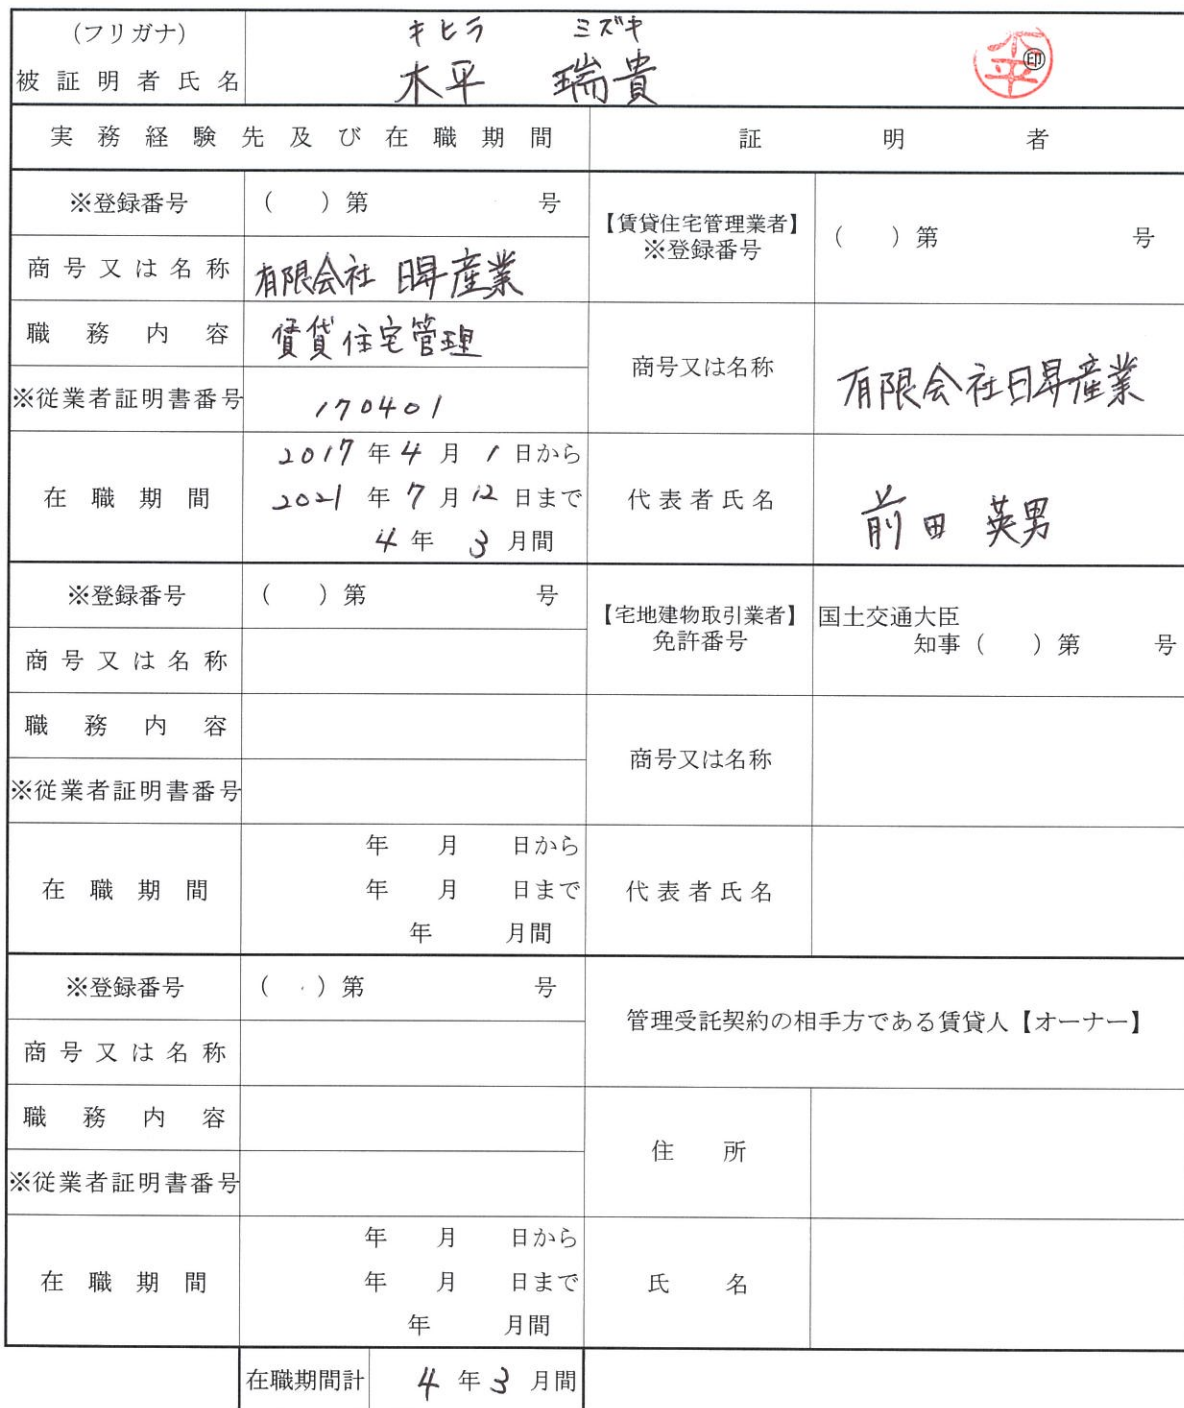 (フリガナ) キヒラ ミズキ
被証明者氏名 木平 瑞貴 木平 ㊞
実務経験先及び在職期間 証明者
※登録番号 ( )第 号
【賃貸住宅管理業者】 ※登録番号 ( )第 号
商号又は名称 有限会社 日昇産業
職務内容 賃貸住宅管理
商号又は名称 有限会社日昇産業
※従業者証明書番号 170401
在職期間 2017年4月1日から
2021年7月12日まで
4年3月間
代表者氏名 前田 英男
※登録番号 ( )第 号
【宅地建物取引業者】 免許番号 国土交通大臣
知事( )第 号
商号又は名称
職務内容
商号又は名称
※従業者証明書番号
在職期間 年 月 日から
年 月 日まで
年 月間
代表者氏名
※登録番号 ( )第 号
管理受託契約の相手方である賃貸人【オーナー】
商号又は名称
職務内容
住所
※従業者証明書番号
在職期間 年 月 日から
年 月 日まで
年 月間
氏名
在職期間計 4年3月間